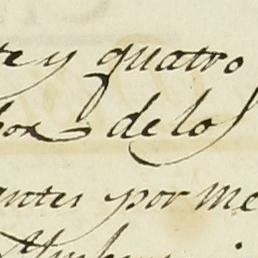 te y quatro
por de los
antes por me